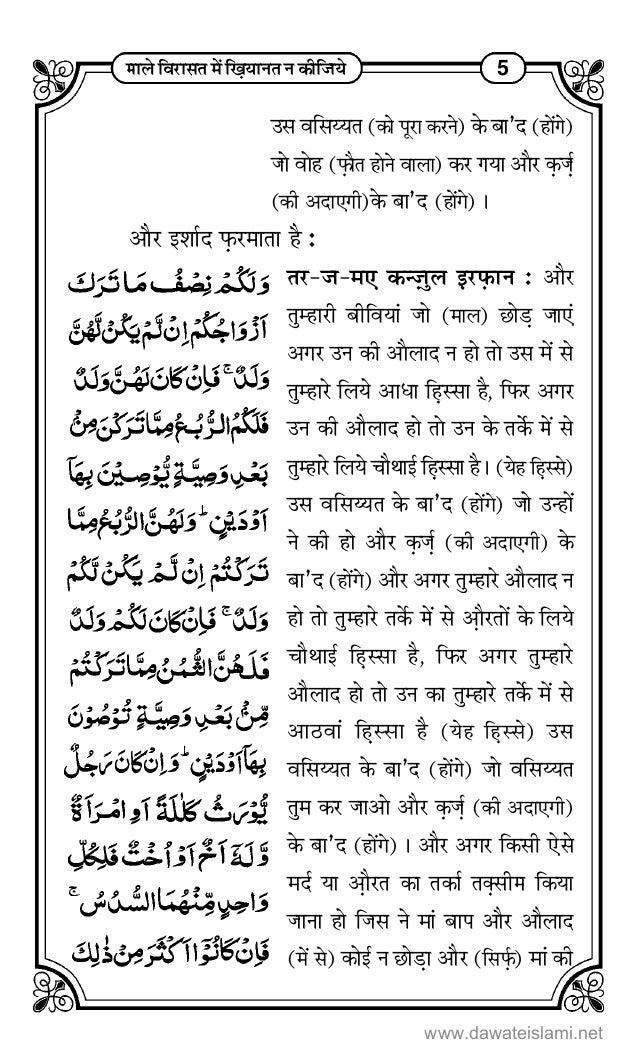 माले विरासत में ख़ियानत न कीजिये
5
उस वसिय्यत (को पूरा करने) के बा'द (होंगे)
जो वोह (फ़ौत होने वाला) कर गया और क़र्ज़
(की अदाएगी)के बा'द (होंगे) ।
और इर्शाद फ़रमाता है :
وَلَكُمْ نِصْفُ مَا تَرَكَ
اَزْوَاجُكُمْ اِنْ لَّمْ يَكُنْ لَّهُنَّ
وَلَدٌ ۚ فَاِنْ كَانَ لَهُنَّ وَلَدٌ
فَلَكُمُ الرُّبُعُ مِمَّا تَرَكْنَ مِنْۢ
بَعْدِ وَصِيَّةٍ يُّوْصِيْنَ بِهَاۤ
اَوْ دَيْنٍ ؕ وَلَهُنَّ الرُّبُعُ مِمَّا
تَرَكْتُمْ اِنْ لَّمْ يَكُنْ لَّكُمْ
وَلَدٌ ۚ فَاِنْ كَانَ لَكُمْ وَلَدٌ
فَلَهُنَّ الثُّمُنُ مِمَّا تَرَكْتُمْ
مِّنْۢ بَعْدِ وَصِيَّةٍ تُوْصُوْنَ
بِهَاۤ اَوْ دَيْنٍ ؕ وَاِنْ كَانَ رَجُلٌ
يُّوْرَثُ كَلٰلَةً اَوِ امْرَاَةٌ
وَّلَهٗۤ اَخٌ اَوْ اُخْتٌ فَلِكُلِّ
وَاحِدٍ مِّنْهُمَا السُّدُسُ ۚ
فَاِنْ كَانُوْۤا اَكْثَرَ مِنْ ذٰلِكَ
तर-ज-मए कन्ज़ुल इरफ़ान : और
तुम्हारी बीवियां जो (माल) छोड़ जाएं
अगर उन की औलाद न हो तो उस में से
तुम्हारे लिये आधा हि़स्सा है, फिर अगर
उन की औलाद हो तो उन के तर्के में से
तुम्हारे लिये चौथाई हि़स्सा है। (येह हि़स्से)
उस वसिय्यत के बा'द (होंगे) जो उन्हों
ने की हो और क़र्ज़ (की अदाएगी) के
बा'द (होंगे) और अगर तुम्हारे औलाद न
हो तो तुम्हारे तर्के में से औ़रतों के लिये
चौथाई हि़स्सा है, फिर अगर तुम्हारे
औलाद हो तो उन का तुम्हारे तर्के में से
आठवां हि़स्सा है (येह हि़स्से) उस
वसिय्यत के बा'द (होंगे) जो वसिय्यत
तुम कर जाओ और क़र्ज़ (की अदाएगी)
के बा'द (होंगे) । और अगर किसी ऐसे
मर्द या औ़रत का तर्का तक़्सीम किया
जाना हो जिस ने मां बाप और औलाद
(में से) कोई न छोड़ा और (सिर्फ़) मां की
www.dawateislami.net